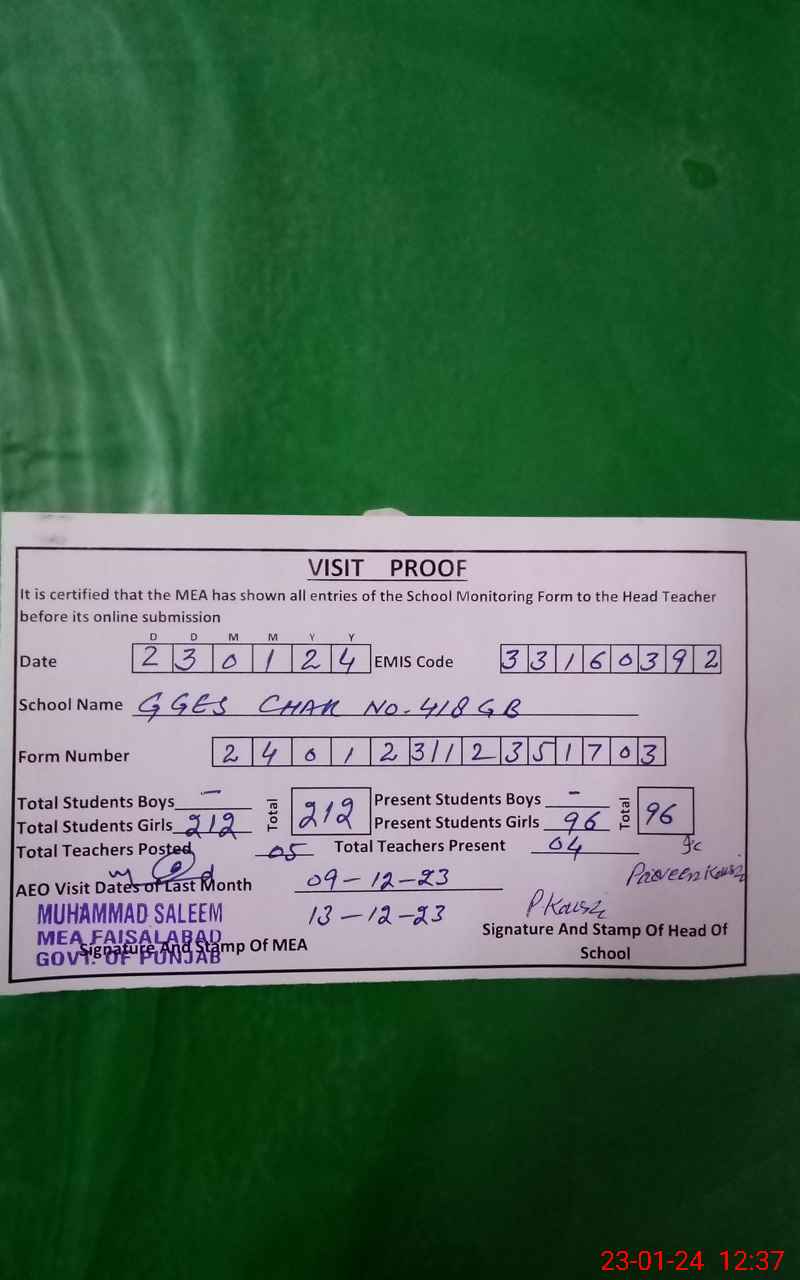 VISIT PROOF
It is certified that the MEA has shown all entries of the School Monitoring Form to the Head Teacher
before its online submission
D D M M Y Y
Date 2 3 0 1 2 4 EMIS Code 3 3 1 6 0 3 9 2
School Name GGES CHAK NO. 418 GB
Form Number 2 4 0 1 2 3 1 2 3 5 1 7 0 3
Total Students Boys - Total 212 Present Students Boys - Total 96
Total Students Girls 212 Present Students Girls 96
Total Teachers Posted 05 Total Teachers Present 04
Parveen Kausar
AEO Visit Dates of Last Month 09-12-23
13-12-23
P Kausar
MUHAMMAD SALEEM
MEA FAISALABAD
GOVT. OF PUNJAB
Signature And Stamp Of MEA
Signature And Stamp Of Head Of
School
23-01-24 12:37